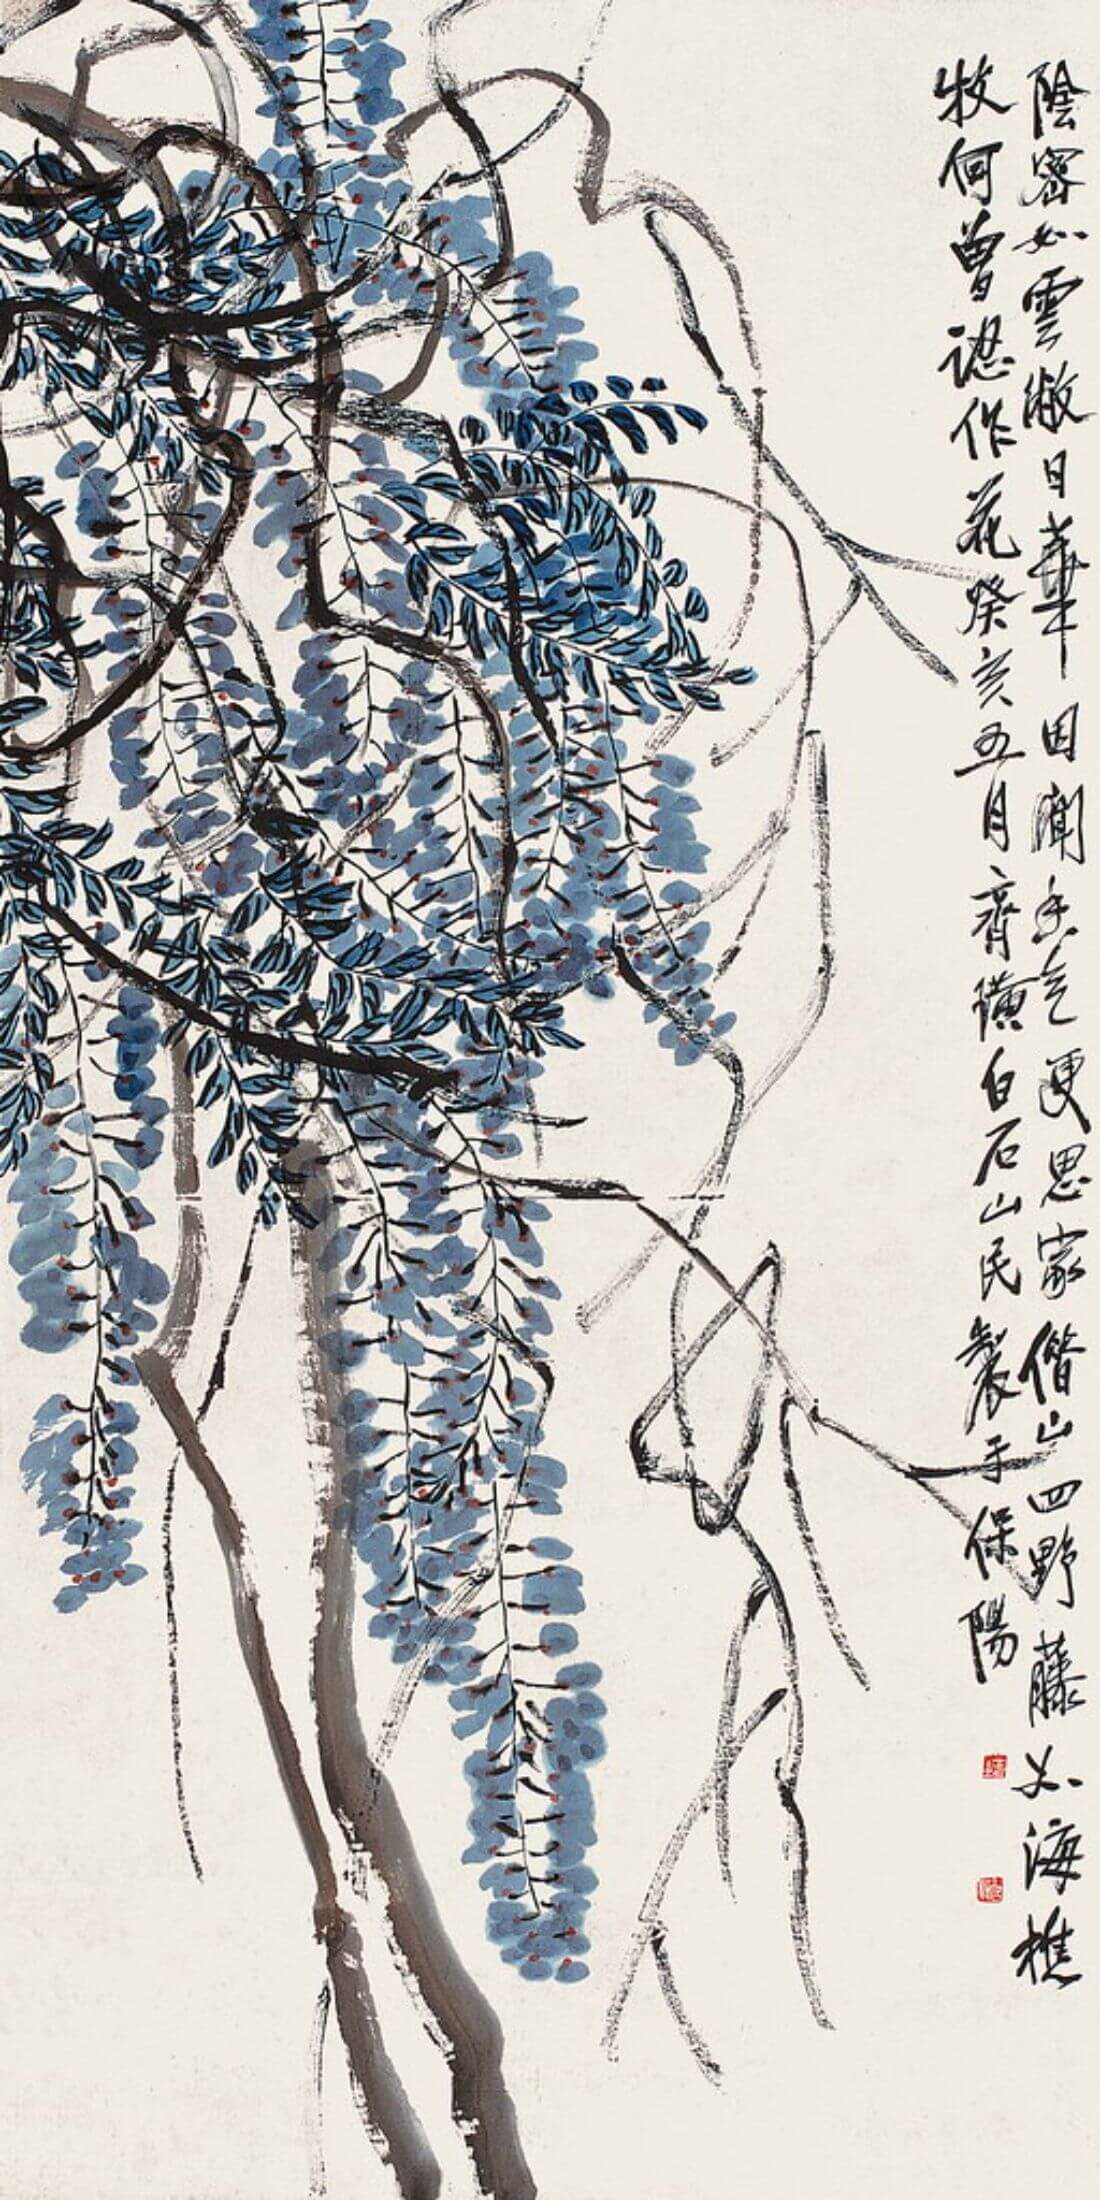 陰密如雲敝日華因聞香气更思家借山四野藤如海樵
牧何曾認作花癸亥五月齊璜白石山民製于保陽